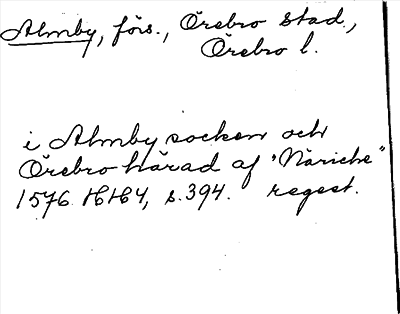 Almby, förs., Örebro stad,
Örebro l.
i Almby socken och
Örebro härad af "Näriche"
1576 HH64, s. 394. regest.